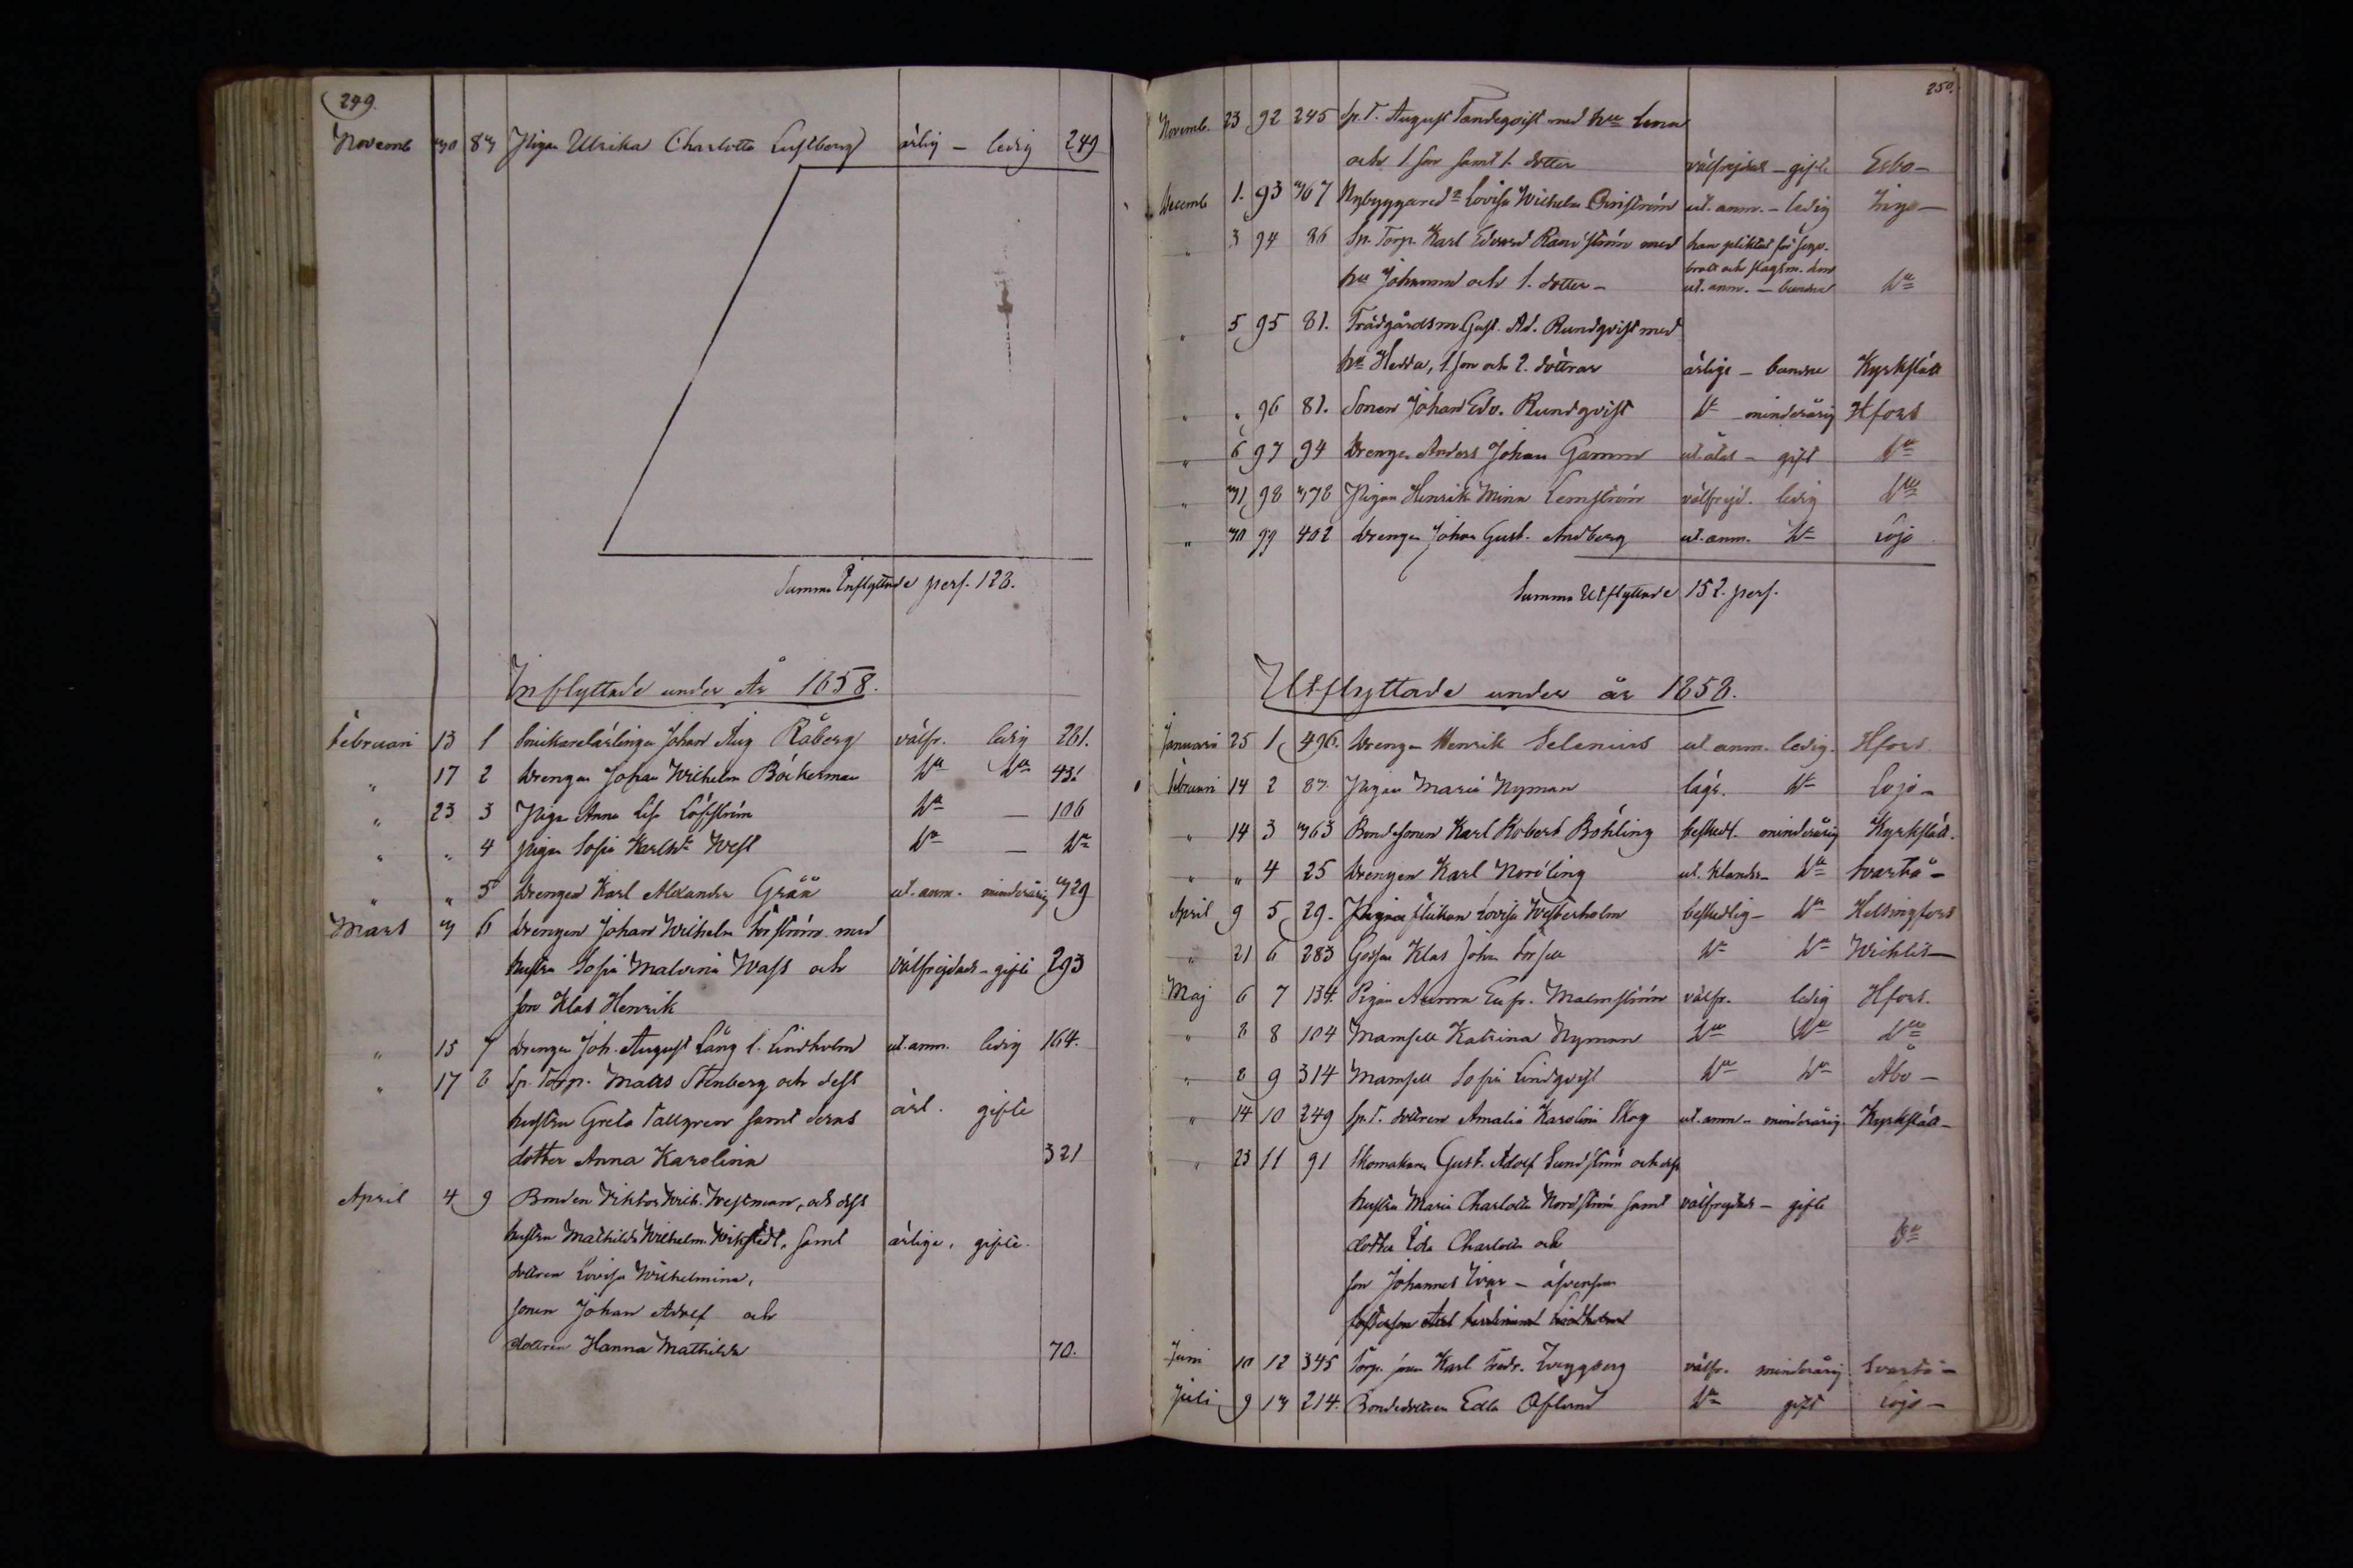 249.
Novemb 30 83 Pigan Ulrika Charlotta Lustberg ärlig – ledig 249
Summa Inflyttade pers. 128.
Inflyttade under År 1858.
Februari 13 1 Snickarelärlingen Johan Aug Råberg välfr. ledig 281.
" 17 2 Drengen Johan Wilhelm Böckerman Do Do 431
" 23 3 Pigan Anna Lis. Löfström Do — 106
" " 4 pigan Sofia Karlsdr West Do — Do
" " 5 Drengen Karl Alexander Grån ut. anm. minderårig 329
Mars 3 6 Drengen Johan Wilhelm Forström med
hustru Sofia Malvina Wass och välfrejdade – gifte 293
son Klas Henrik
" 15 7 Drengen Joh. August Lång l. Lindholm ut. anm. ledig 164.
" 17 8 Sp. Torp. Matts Stenberg och dess
hustru Greta Tallgren samt deras ärl. gifte
dotter Anna Karolina 321
April 4 9 Bonden Viktor Wilh. Westman, och dess
hustru Mathilda Wilhelm. Wikstedt, samt ärlige, gifte.
dottren Lovisa Wilhelmina,
sonen Johan Adolf och
dottren Hanna Mathilda 70.
250.
Novemb. 23 92 245 Sp. T. August Tandeqvist med hu Lena
och 1 son samt 1. dotter välfrejdade – gifte Esbo –
Decemb 1. 93 367 Nybyggaredr Lovisa Wilhelm Qviström ut. anm. – ledig Ingo –
" 3 94 36 Sp. Torp. Karl Edvard Randström med han pliktat för
brott och slagsm. hon
hu Johanna och 1. dotter – ut. anm. – bundne Do
" 5 95 81. Trädgårdsm. Gust. Ad. Rundqvist med
hu Hedda, 1 son och 2. döttrar ärlige – bundne Kyrkslätt
" " 96 81. Sonen Johan Edv. Rundqvist Do – minderårig Hfors
" 6 97 94 Drengen Anders Johan Gamm – gift Do
" 31 98 378 Pigan Henrik. Mina Lemström välfrejd. ledig Do
" 30 99 402 Drengen Johan Gust. Andberg ut. anm. Do Lojo
Summa Utflyttade 152. pers.
Utflyttade under år 1858.
Januari 25 1 496. Drengen Henrik Selenius ut anm. ledig. Hfors
Februari 14 2 87. Pigan Maria Nyman läg. Do Lojo –
" 14 3 363 Bondesonen Karl Robert Böhling beskedl. minderårig Kyrkslätt.
" " 4 25 Drengen Karl Nordling ut. klander – Do Svartå –
April 9 5 29. flickan Lovisa Westerholm beskedlig – Do Helsingfors
" 21 6 283 Gossen Klas Johan Forsell Do Do Wichtis –
Maj 6 7 134. Pigan Aurora Eufr. Malmström välfr. ledig Hfors.
" 8 8 104 Mamsell Katrina Nyman Do Do Do
" 8 9 314 Mamsell Sofia Lindqvist Do Do Åbo –
" 14 10 249 Sp. T. dottren Amalia Karolina Skog ut. anm – minderårig Kyrkslätt –
" 23 11 91 Skomakaren Gust. Adolf Sundström och dess
hustru Maria Charlotta Nordström samt välfrejdade – gifte
dotter Ida Charlotta och Do
son Johannes Ivar – äfvensom
fosterson Axel Ferdinand Lindholm
Juni 10 12 345 Torp. sonen Karl Fredr. Tvegsberg välfr. minderårig Svartå –
Juli 9 13 214. Bondedottren Edla Öflund Do gift Lojo –